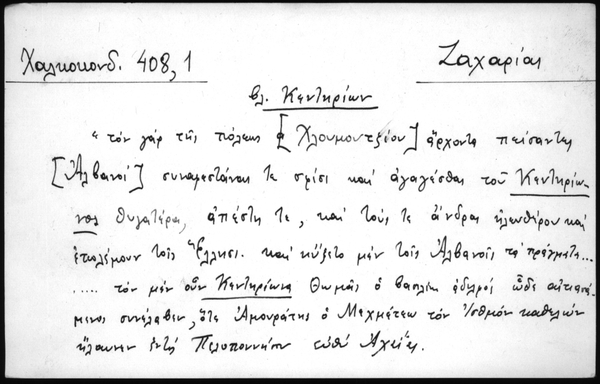 Χαλκοκονδ. 408,1 Ζαχαρίας
βλ. Κεντηρίων
"τὸν γὰρ τῆς πόλεως [Χλουμουτζίου] ἄρχοντα πείσαντες
[Ἀλβανοί] συναφεστάναι τε σφίσι καὶ ἀγαγέσθαι τοῦ Κεντηρίω-
νος θυγατέρα, ἀπέστη τε, καὶ τούς τε ἄνδρας ἠλευθέρου καὶ
ἐπολέμουν τοῖς Ἕλλησι. καὶ ηὔξετο μὲν τοῖς Ἀλβανοῖς τὰ πράγματα...
..... τὸν μὲν οὖν Κεντηρίωνα Θωμᾶς ὁ βασιλέως ἀδελφὸς ὧδε αἰτιασά-
μενος συνέλαβεν, ὅτε Ἀμουράτης ὁ Μεχμέτεω τὸν Ἰσθμὸν καθελὼν
ἤλαυνεν ἐντὸς Πελοποννήσου εὐθὺ Ἀχαΐας.